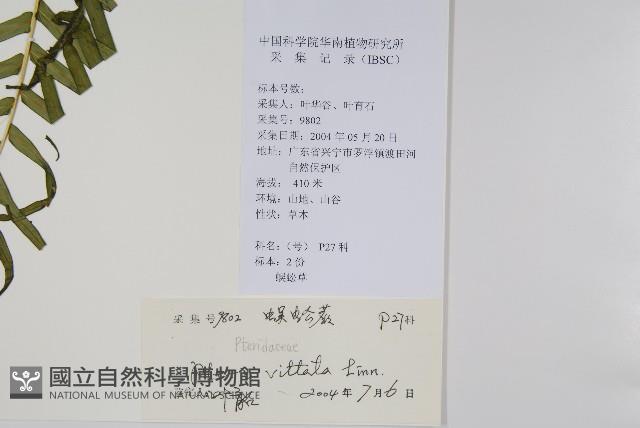 中国科学院华南植物研究所
采 集 记 录（IBSC）
标本号数：
采集人：叶华谷、叶育石
采集号：9802
采集日期：2004 年 05 月 20 日
地址：广东省兴宁市罗浮镇渡田河
自然保护区
海拔： 410 米
环境：山地、山谷
性状：草本
科名：（号） P27 科
标本：2 份
蜈蚣草
采集号 9802 蜈蚣蕨 P27科
Pteridaceae
vittata Linn.
2004 年 7 月 6 日
國立自然科學博物館
NATIONAL MUSEUM OF NATURAL SCIENCE